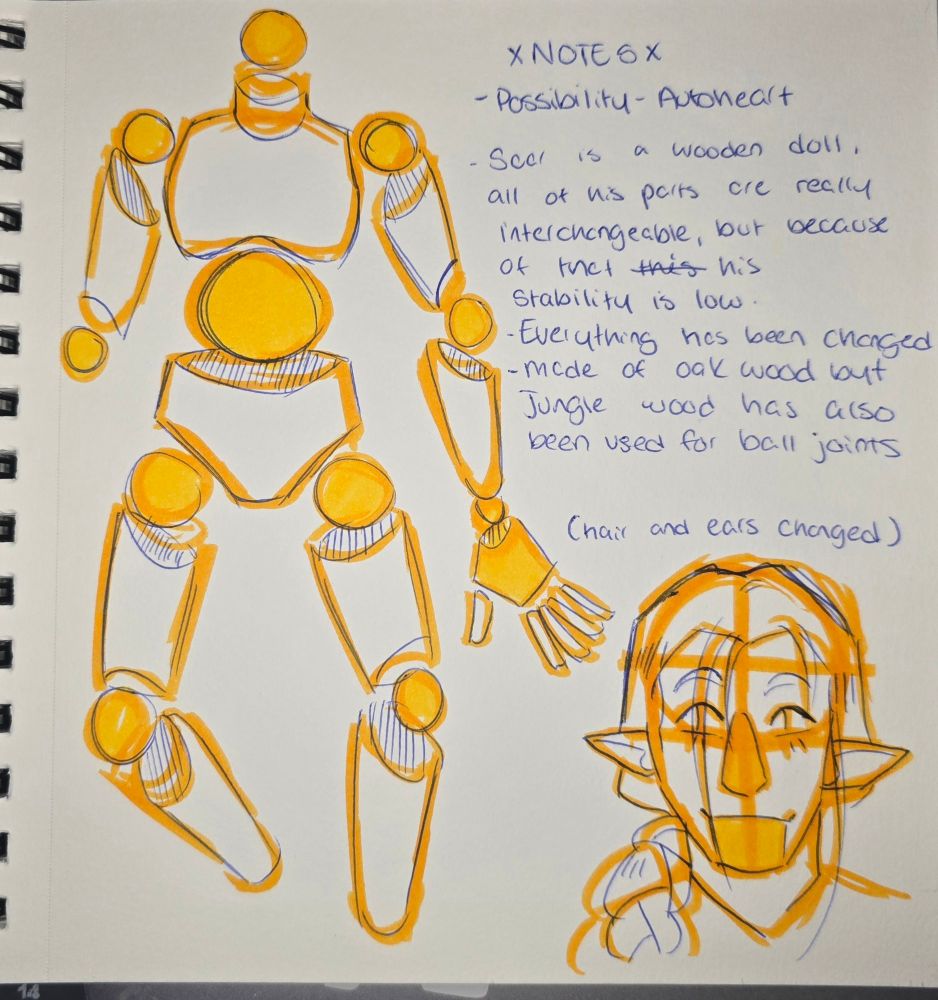 x NOTES x
- Possibility - Autoheart
- Scar is a wooden doll,
all of his parts are really
interchangeable, but because
of that this his
stability is low.
- Everything has been changed
- made of oak wood but
Jungle wood has also
been used for ball joints
(hair and ears changed)